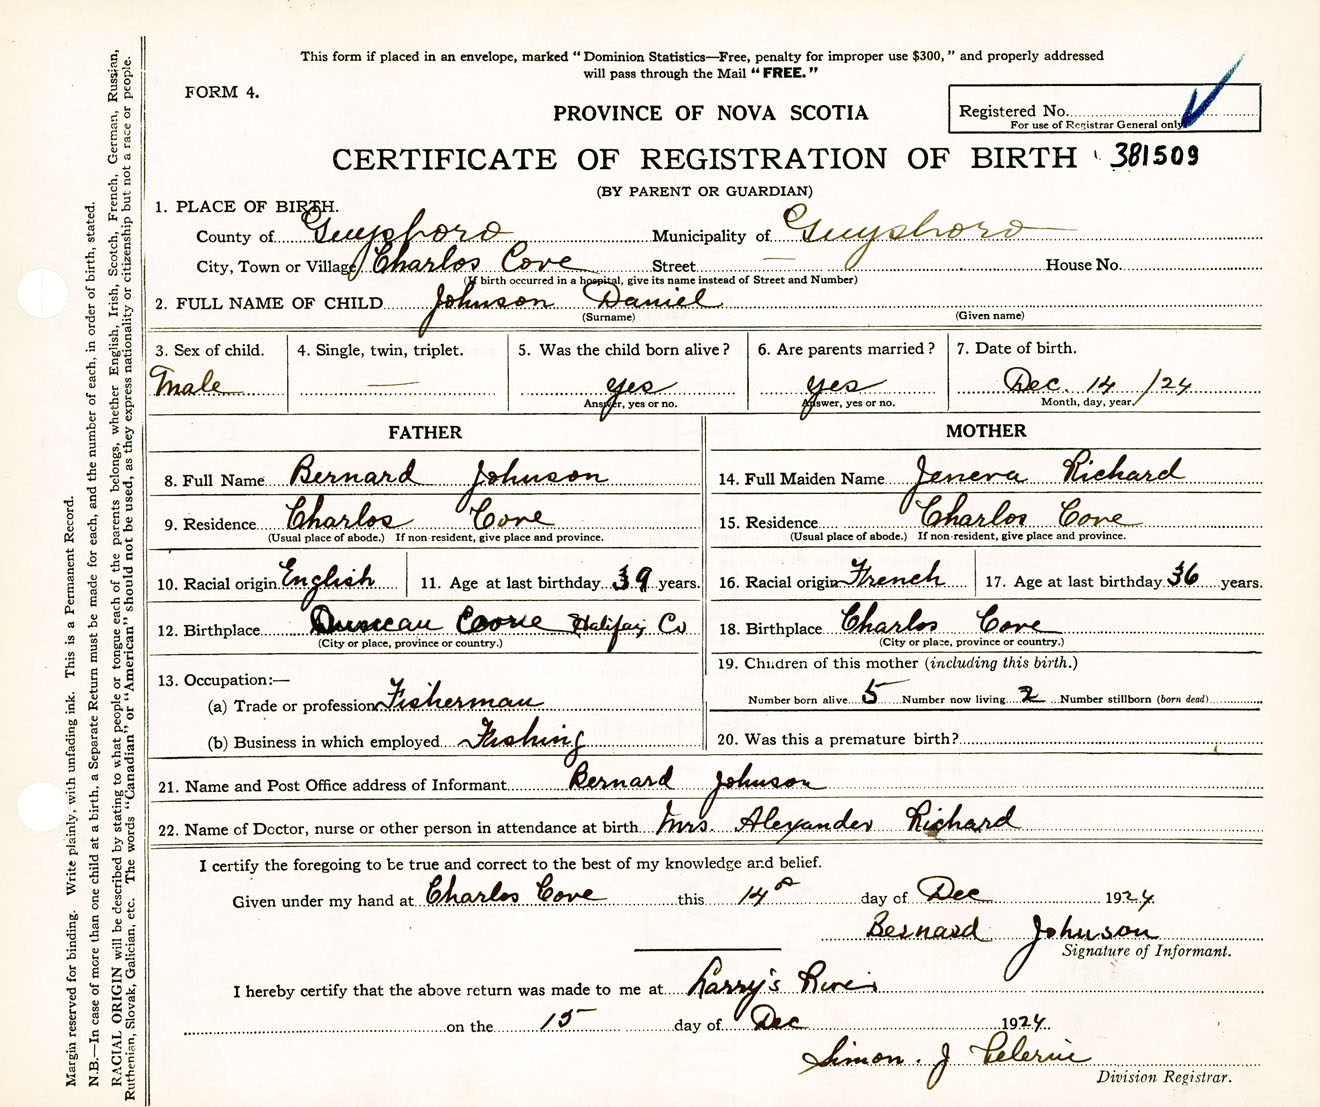 This form if placed in an envelope, marked "Dominion Statistics—Free, penalty for improper use $300," and properly addressed
will pass through the Mail "FREE."
FORM 4.
PROVINCE OF NOVA SCOTIA
Registered No.
For use of Registrar General only
CERTIFICATE OF REGISTRATION OF BIRTH 381509
(BY PARENT OR GUARDIAN)
1. PLACE OF BIRTH.
County of Guysboro Municipality of Guysboro
City, Town or Village Charlos Cove Street — House No.
(If birth occurred in a hospital, give its name instead of Street and Number)
2. FULL NAME OF CHILD Johnson Daniel
(Surname) (Given name)
3. Sex of child. 4. Single, twin, triplet. 5. Was the child born alive? 6. Are parents married? 7. Date of birth.
Male — yes yes Dec. 14 /24
Answer, yes or no. Answer, yes or no. Month, day, year.
FATHER MOTHER
8. Full Name Bernard Johnson 14. Full Maiden Name Jeneva Richard
9. Residence Charlos Cove 15. Residence Charlos Cove
(Usual place of abode.) If non-resident, give place and province. (Usual place of abode.) If non-resident, give place and province.
10. Racial origin English 11. Age at last birthday 39 years. 16. Racial origin French 17. Age at last birthday 36 years.
12. Birthplace Duncan Coove Halifax Co 18. Birthplace Charlos Cove
(City or place, province or country.) (City or place, province or country.)
13. Occupation:— 19. Children of this mother (including this birth.)
(a) Trade or profession Fisherman Number born alive 5 Number now living 2 Number stillborn (born dead)
(b) Business in which employed Fishing 20. Was this a premature birth?
21. Name and Post Office address of Informant Bernard Johnson
22. Name of Doctor, nurse or other person in attendance at birth Mrs. Alexander Richard
I certify the foregoing to be true and correct to the best of my knowledge and belief.
Given under my hand at Charlos Cove this 14 day of Dec 1924.
Bernard Johnson
Signature of Informant.
I hereby certify that the above return was made to me at Larry's River
on the 15 day of Dec 1924
Simon. J Pelerine
Division Registrar.
Margin reserved for binding. Write plainly, with unfading ink. This is a Permanent Record.
N.B.—In case of more than one child at a birth, a Separate Return must be made for each, and the number of each, in order of birth, stated.
RACIAL ORIGIN will be described by stating to what people or tongue each of the parents belongs, whether English, Irish, Scotch, French, German, Russian,
Ruthenian, Slovak, Galician, etc. The words "Canadian" or "American" should not be used, as they express nationality or citizenship but not a race or people.